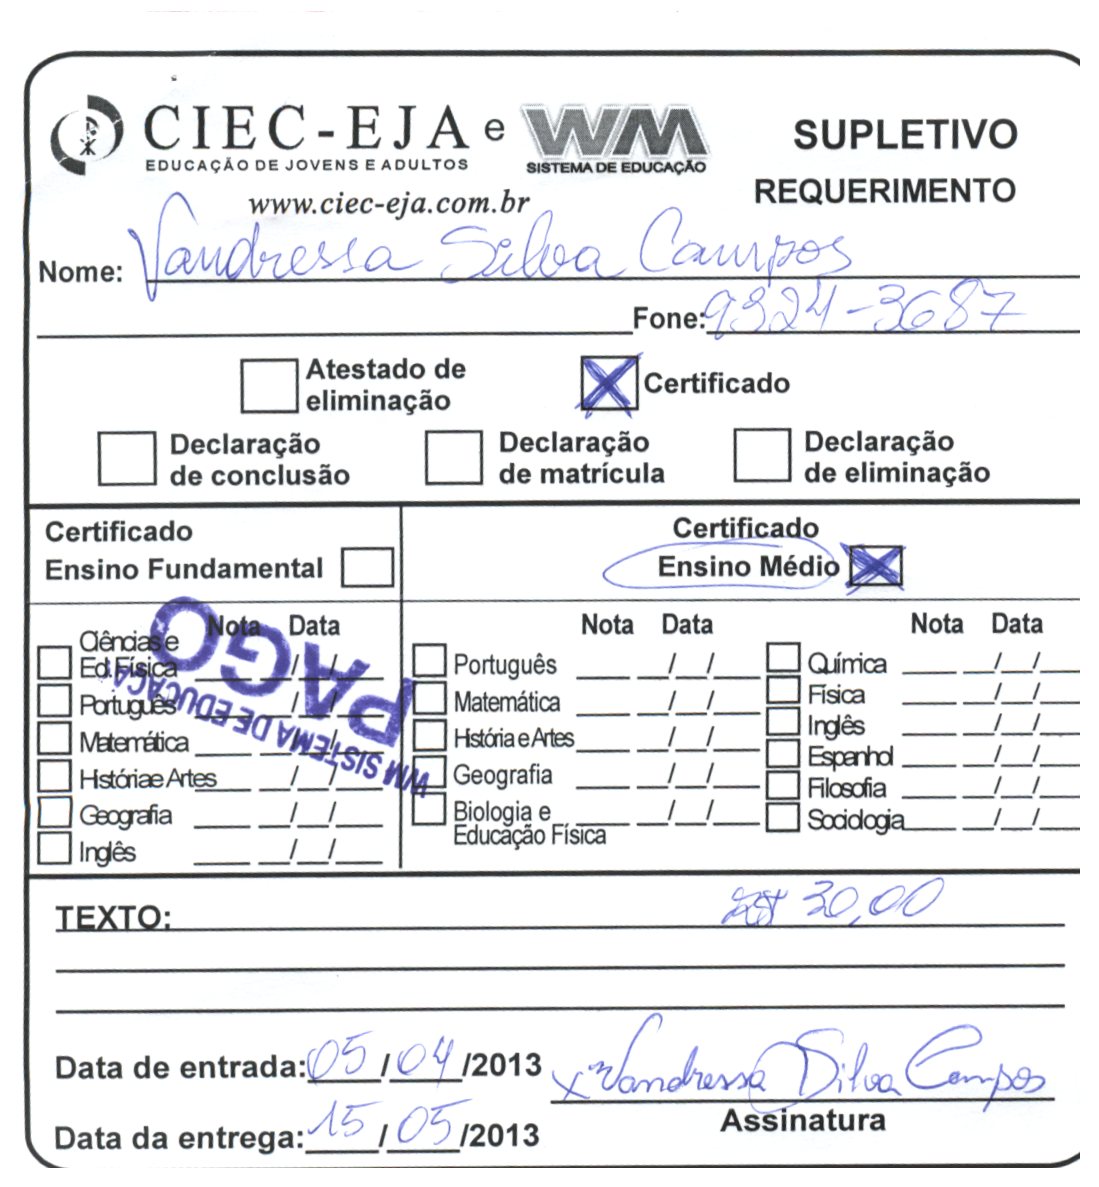 CIEC-EJA e WM SUPLETIVO
EDUCAÇÃO DE JOVENS E ADULTOS SISTEMA DE EDUCAÇÃO
www.ciec-eja.com.br REQUERIMENTO
Nome: Vandressa Silva Campos
Fone: 9324-3687
Atestado de eliminação
Certificado
Declaração de conclusão
Declaração de matrícula
Declaração de eliminação
Certificado
Ensino Fundamental
Nota Data
Ciências e
Ed. Física __ /__/__
Português __ /__/__
Matemática __ /__/__
História e Artes __ /__/__
Geografia __ /__/__
Inglês __ /__/__
PAGO
WM SISTEMA DE EDUCAÇÃ
Certificado
Ensino Médio
Nota Data
Português __ /__/__
Matemática __ /__/__
História e Artes __ /__/__
Geografia __ /__/__
Biologia e
Educação Física __ /__/__
Nota Data
Química __ /__/__
Física __ /__/__
Inglês __ /__/__
Espanhol __ /__/__
Filosofia __ /__/__
Sociologia __ /__/__
TEXTO: R$ 30,00
Data de entrada: 05/04/2013
Vandressa Silva Campos
Assinatura
Data da entrega: 15/05/2013